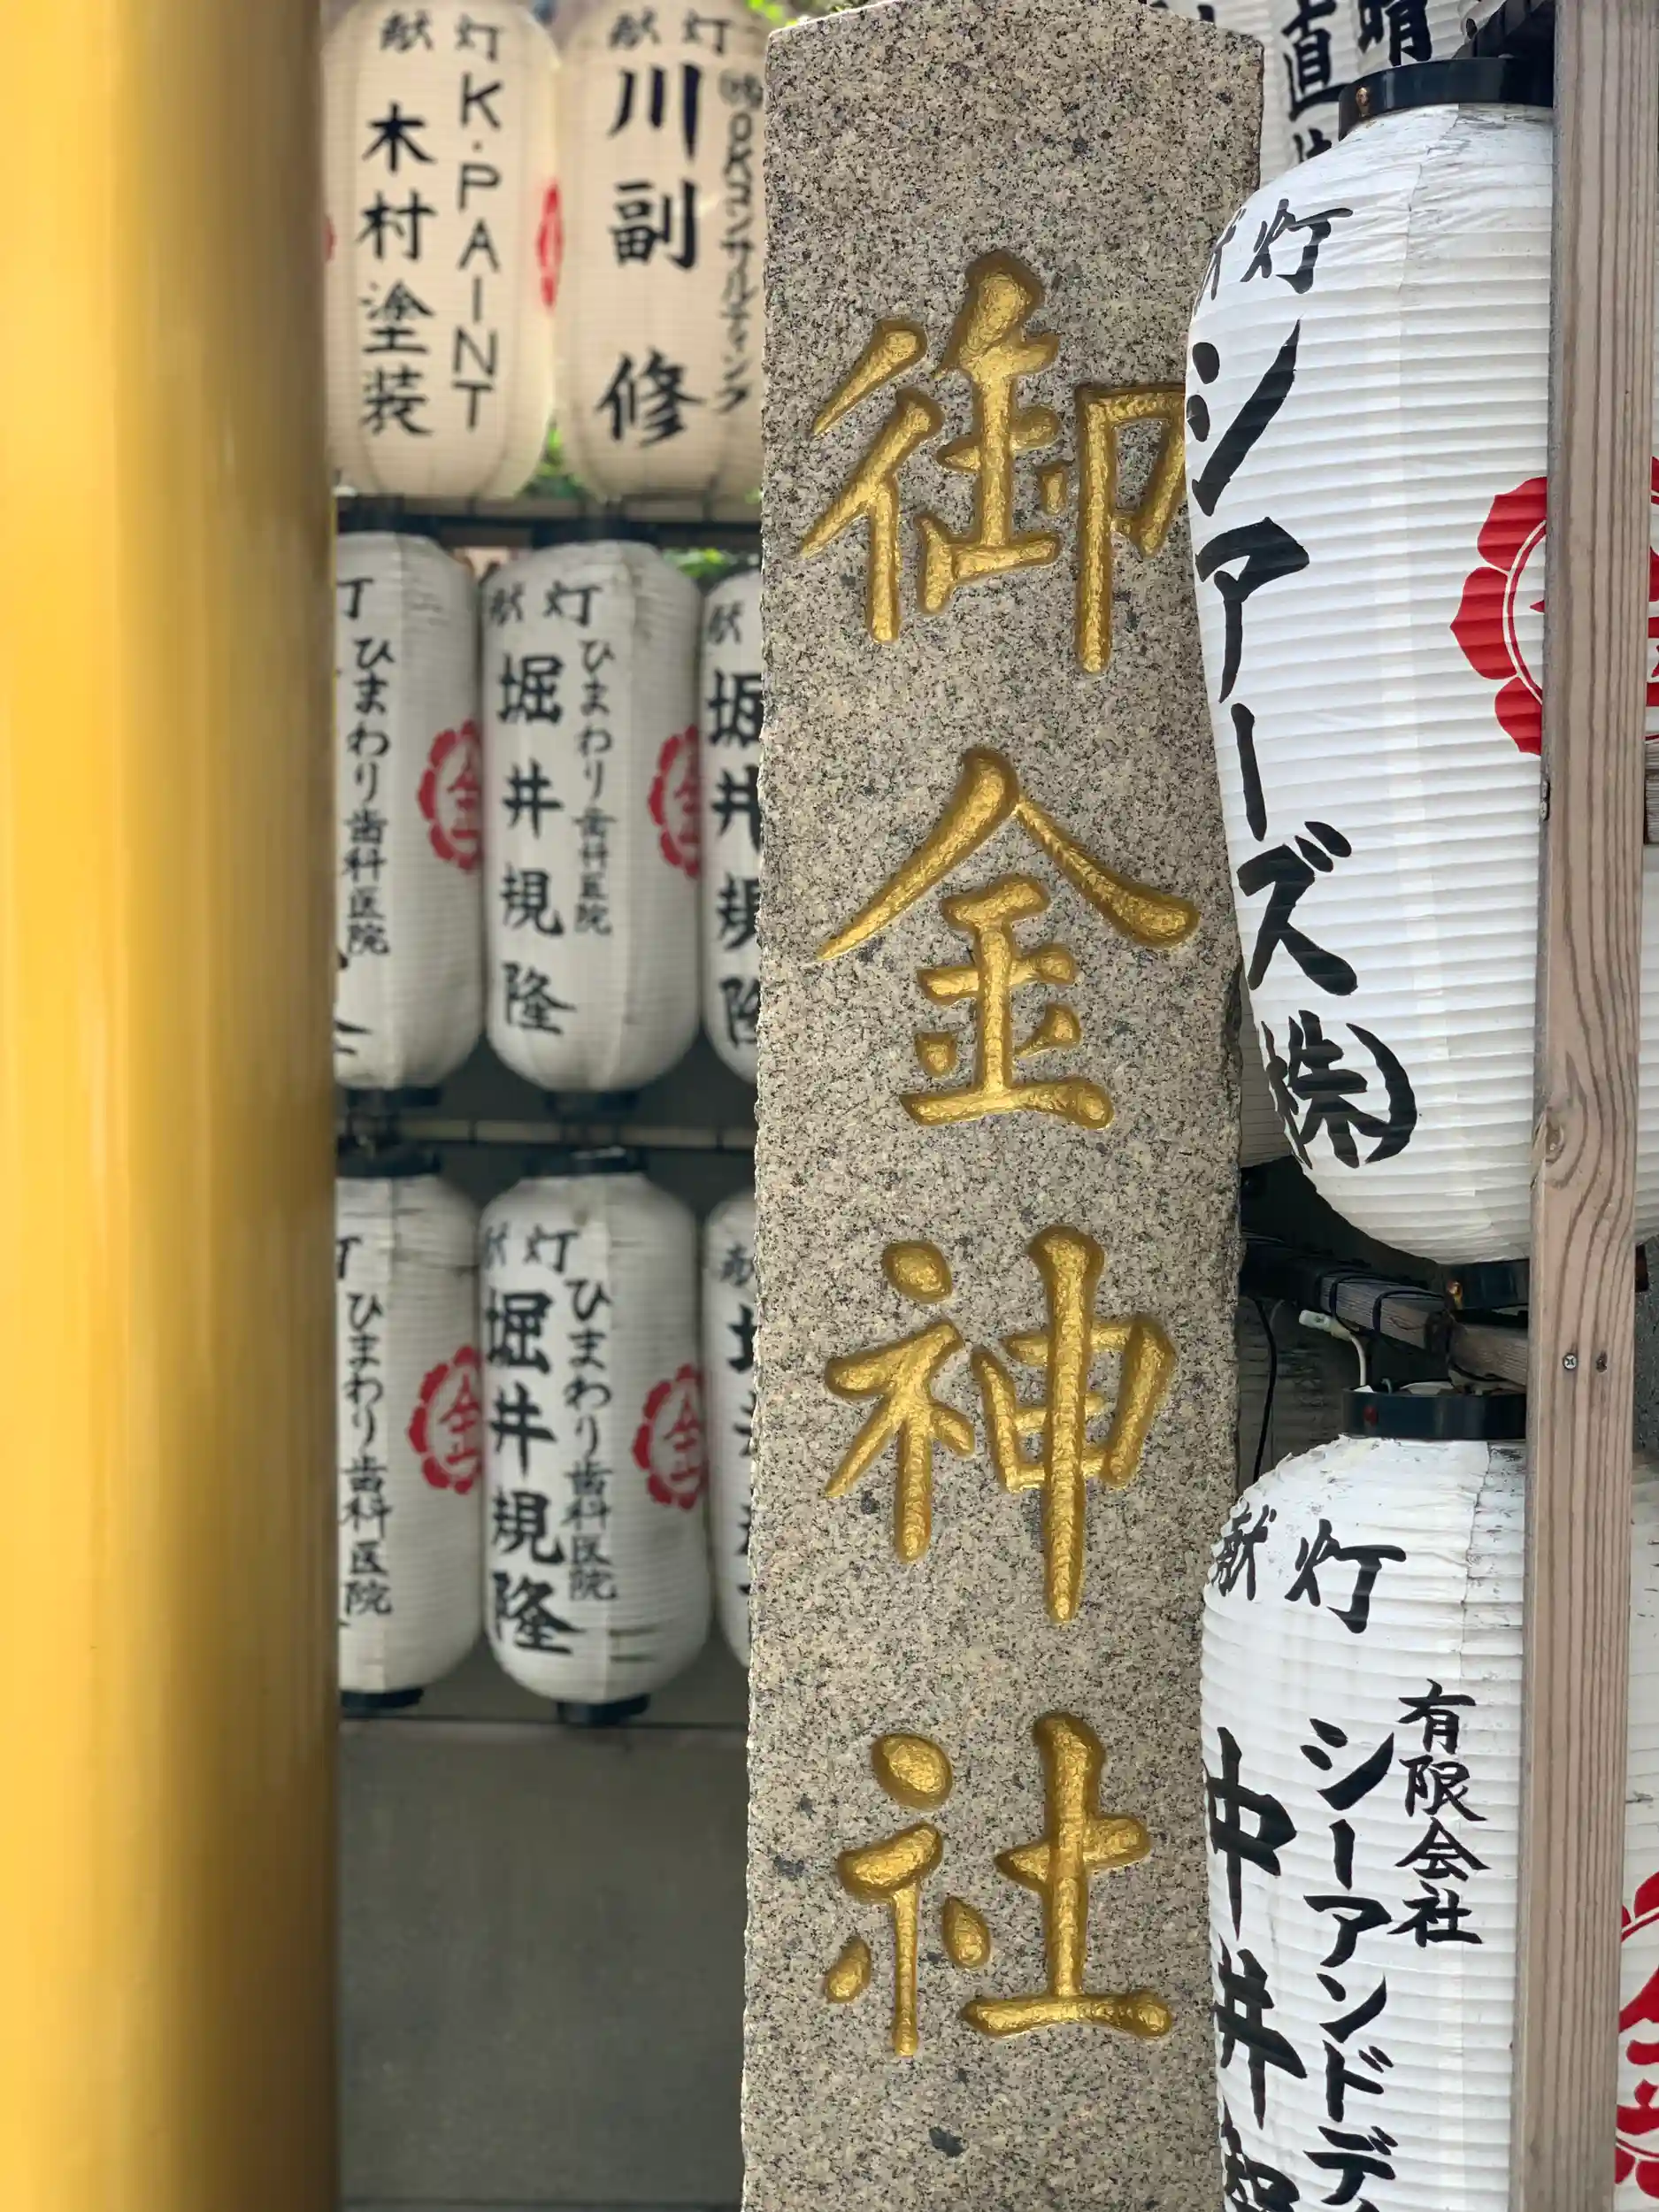 御金神社
献灯
K.PAINT
木村塗装
献灯
㈱OKコンサルティング
川副 修
灯
ひまわり歯科医院
献灯
ひまわり歯科医院
堀井規隆
献
堀井規隆
灯
ひまわり歯科医院
献灯
ひまわり歯科医院
堀井規隆
献
晴
直
献灯
シアーズ㈱
献灯
有限会社
シーアンドデ
中井
金
金
金
金